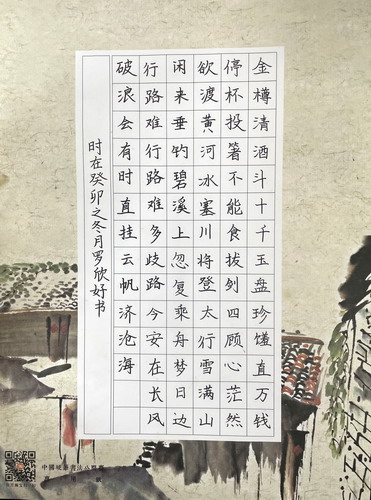 金樽清酒斗十千玉盘珍馐直万钱
停杯投箸不能食拔剑四顾心茫然
欲渡黄河冰塞川将登太行雪满山
闲来垂钓碧溪上忽复乘舟梦日边
行路难行路难多歧路今安在长风
破浪会有时直挂云帆济沧海
时在癸卯之冬月罗欣好书
中國硬筆書法